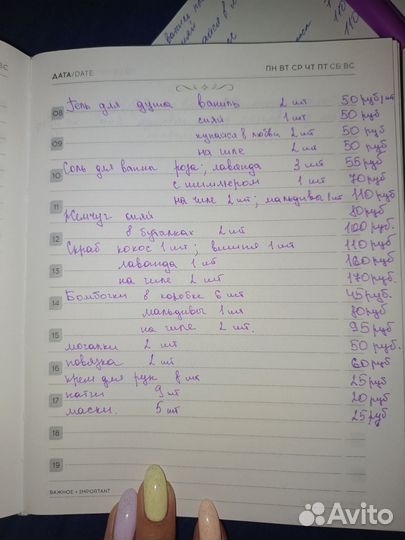 ДАТА/DATE
ПН ВТ СР ЧТ ПТ СБ ВС
08 Гель для душа ваниль 2 шт 50 руб/шт
сияй 1 шт 50 руб
09 купайся в любви 2 шт 50 руб
на чиле 2 шт 50 руб
10 Соль для ванны роза; лаванда 3 шт 55 руб
с шиммером 1 шт 70 руб
11 на чиле 2 шт; мальдивы 1 шт 110 руб
Жемчуг сияй 80 руб
12 в бутылках 2 шт 100 руб.
Скраб кокос 1 шт; вишня 1 шт 110 руб
13 лаванда 1 шт 160 руб
на чиле 2 шт 170 руб
14 Бомбочки в коробке 6 шт 45 руб.
мальдивы 1 шт 80 руб
на чиле 2 шт. 95 руб
15 мочалки 2 шт 50 руб.
16 повязка 2 шт 60 руб
крем для рук 8 шт 25 руб
17 патчи 9 шт 20 руб
маски. 5 шт 25 руб
18
19
ВАЖНОЕ • IMPORTANT
Avito